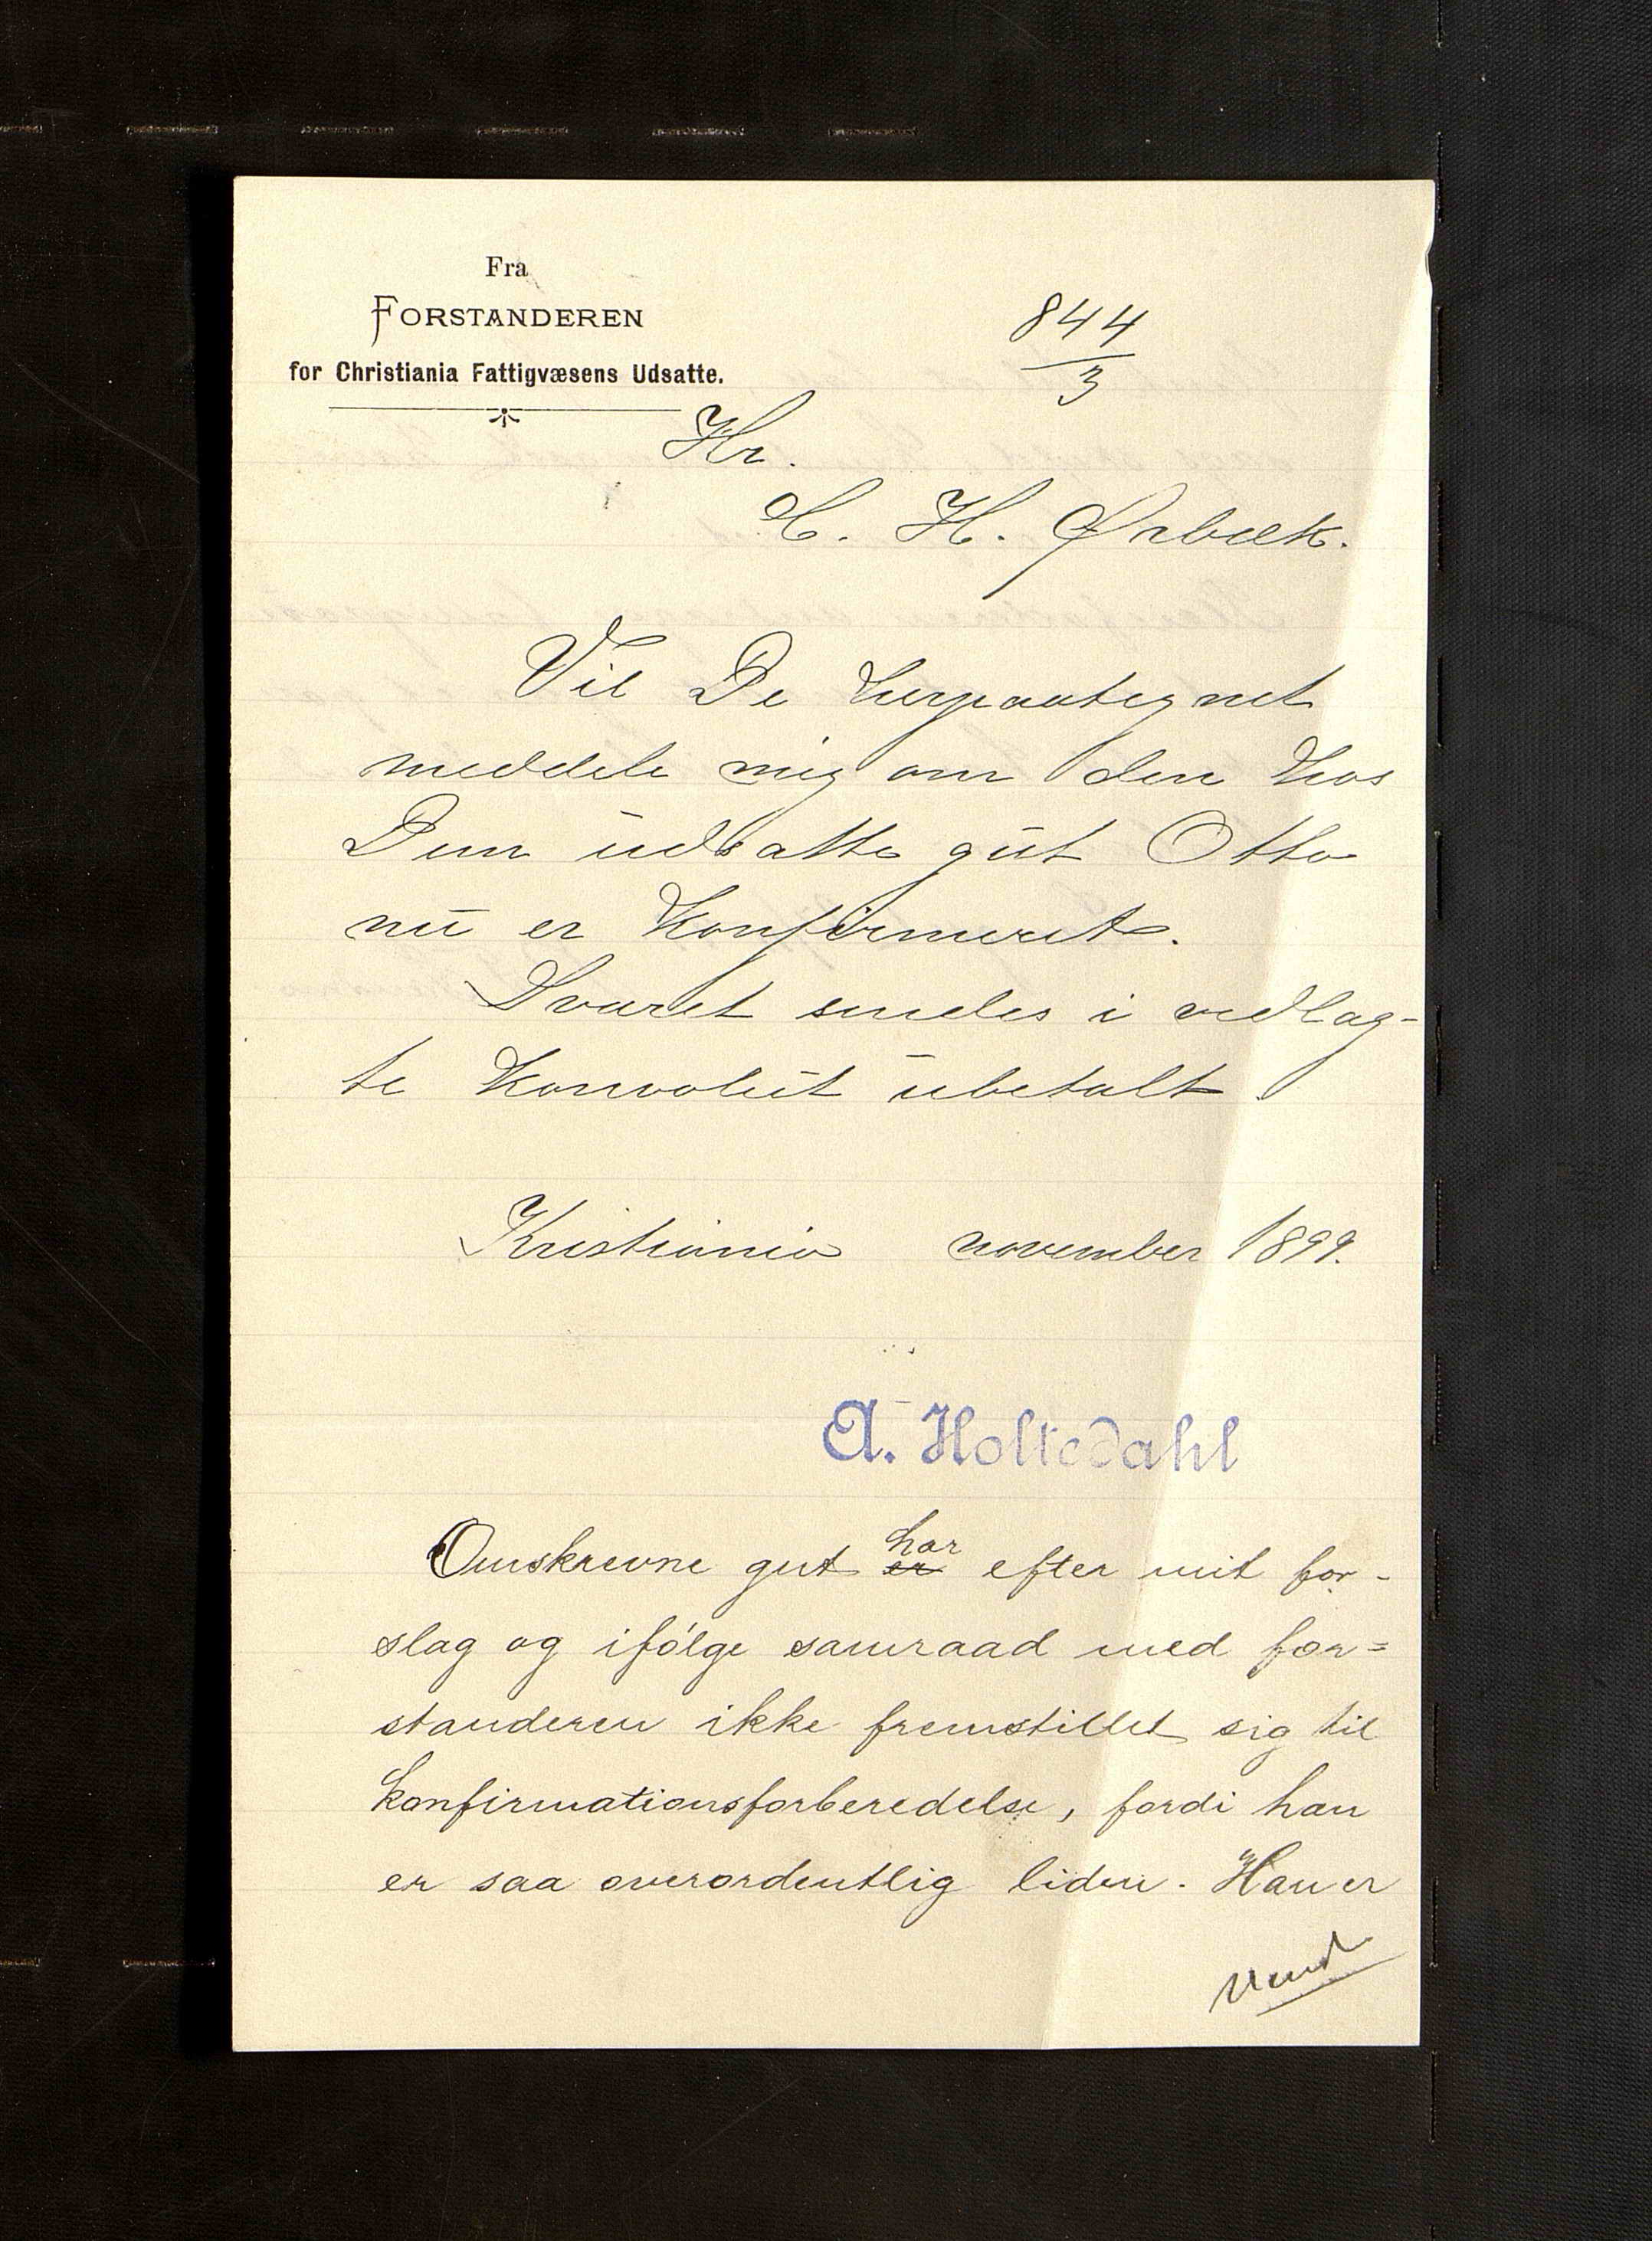 Fra
FORSTANDEREN
for Christiania Fattigvæsens Udsatte.
844
3
Hr.
C. H. Ørbæk.
Vil De herpaategnet
meddele mig om den hos
Dem udsatte gut Otto
nu er konfirmeret.
Svaret sendes i vedlag-
te konvolut ubetalt.
Kristiania november 1899.
A. Holtedahl
har
Omskrevne gut er efter mit for-
slag og ifølge samraad med for=
standeren ikke fremstillet sig til
konfirmationsforberedelse, fordi han
er saa overordentlig liden. Han er
Vend